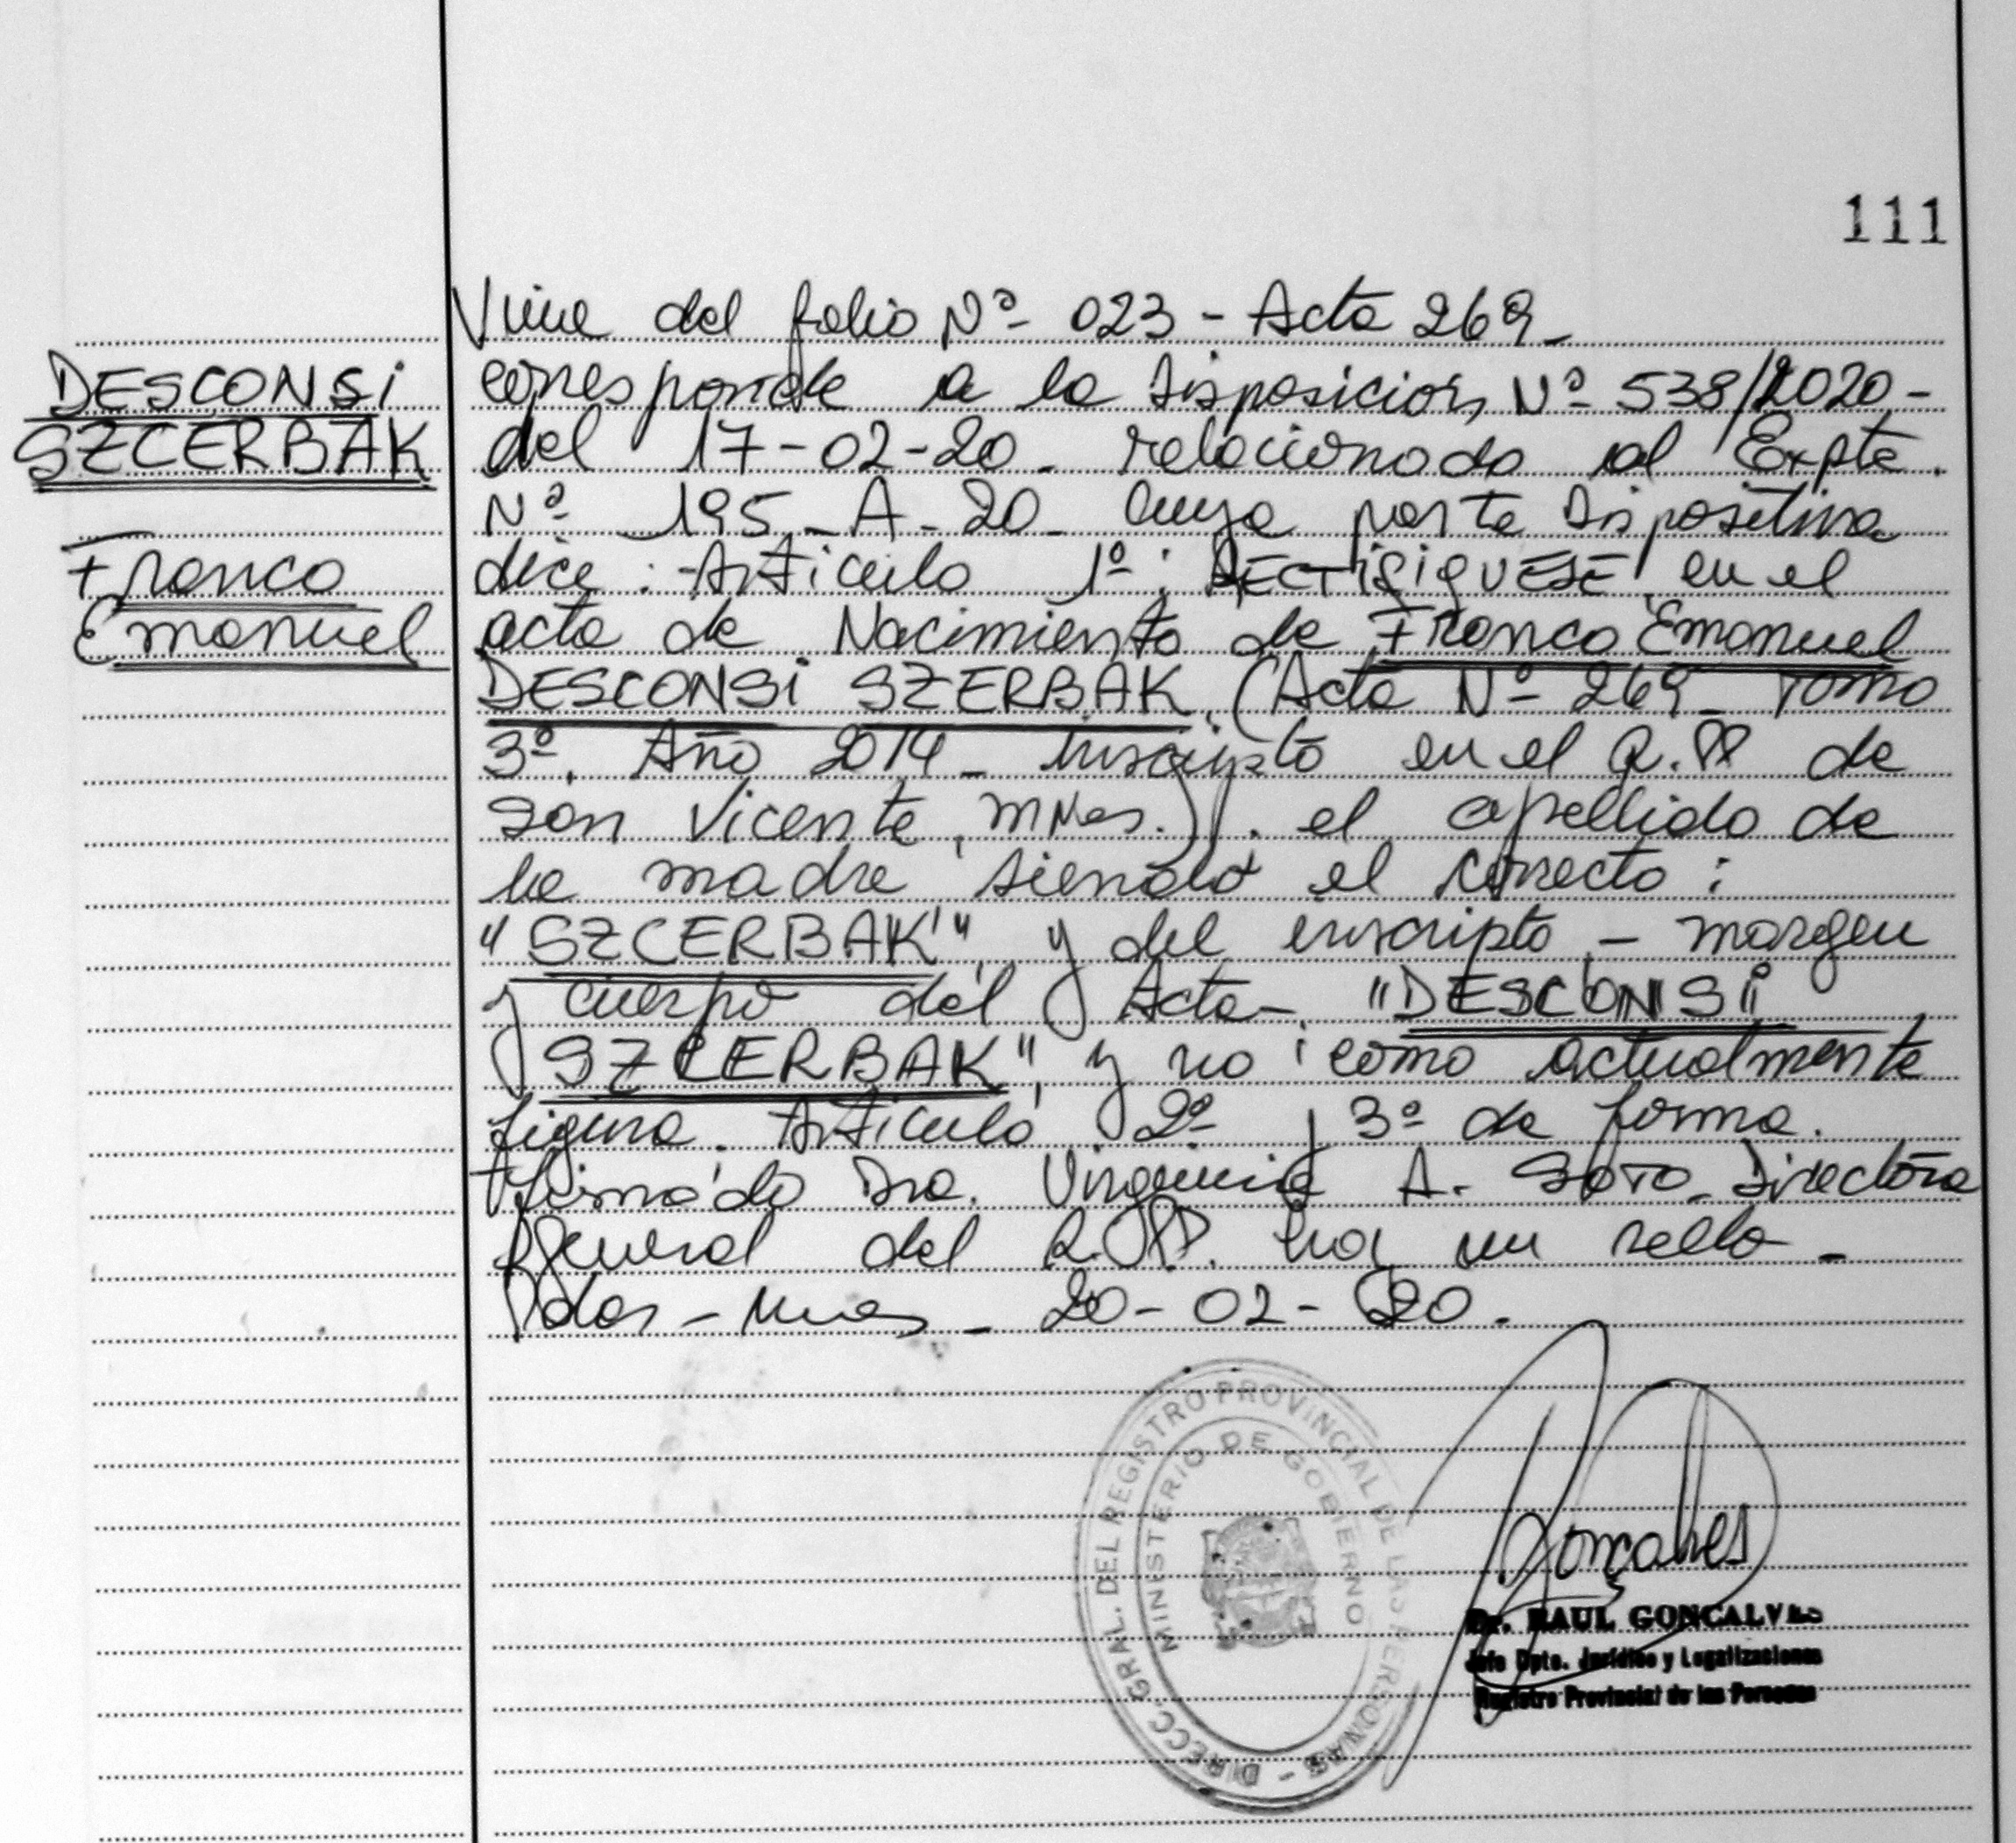 111
DESCONSI
SZCERBAK
Franco
Emanuel
Viene del folio Nº 023 - Acta 269_
corresponde a la Disposicion Nº 538/2020-
del 17-02-20_ relacionado al Expte.
Nº 195_A_20_ cuya parte Dispositiva
dice: Articulo 1º: RECTIFIQUESE, en el
acta de Nacimiento de Franco Emanuel
DESCONSI SZERBAK, (Acta Nº 269_ Tomo
3º. Año 2014_ Inscripto en el R.PP de
San Vicente, Mnes.). el apellido de
la madre siendo el correcto:
"SZCERBAK", y del inscripto - margen
y cuerpo del Acta-, "DESCONSI
SZCERBAK", y no como actualmente
figura. Articulo 2º y 3º de forma.
Firmado Dra. Virginia A. Soto_ Directora
General del R.PP. hay un sello_
Pdas - Mnes_ 20-02-20.
DIRECC. GRAL. DEL REGISTRO PROVINCIAL DE LAS PERSONAS -
MINISTERIO DE GOBIERNO
Goncalves
Dr. RAUL GONCALVES
Jefe Dpto. Jurídico y Legalizaciones
Registro Provincial de las Personas